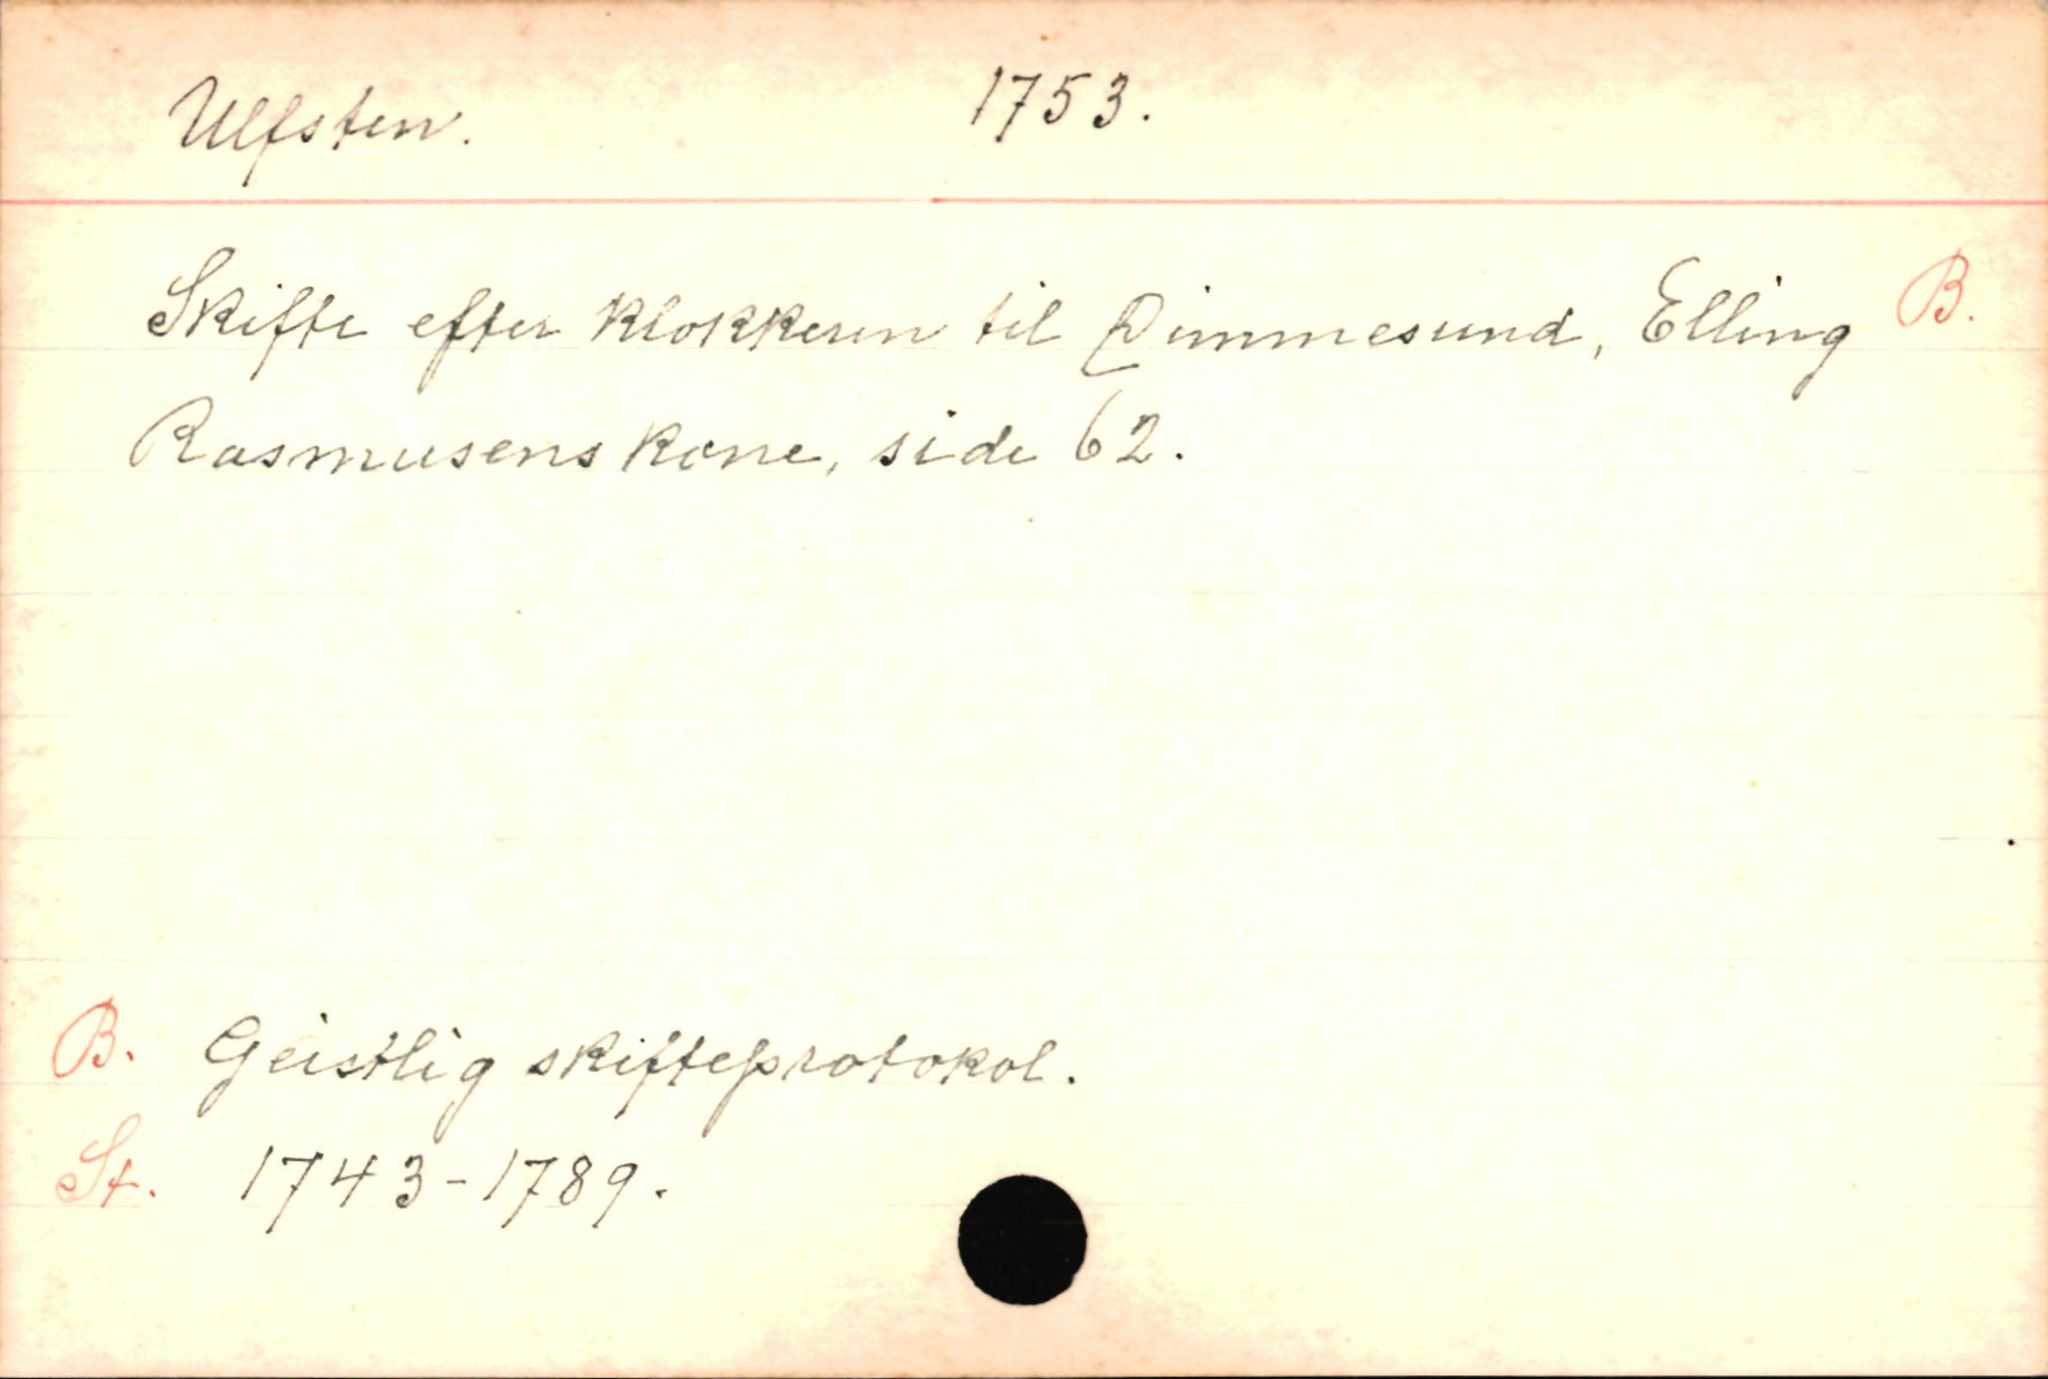 Ulfsten. 1753.
Skifte efter klokkeren til Dimmesund, Elling B.
Rasmusens kone, side 62.
B. Geistlig skifteprotokol.
St. 1743-1789.